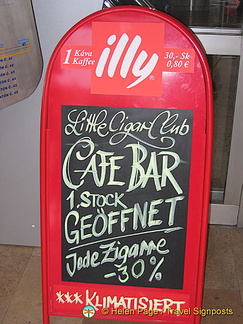 illy
1 Káva 30,- Sk
Kaffee 0,80 €
Little Cigar Club
CAFE BAR
1. STOCK
GEÖFFNET
Jede Zigarre
-30%
*** KLIMATISIERT
© Helen Page - Travel Signposts